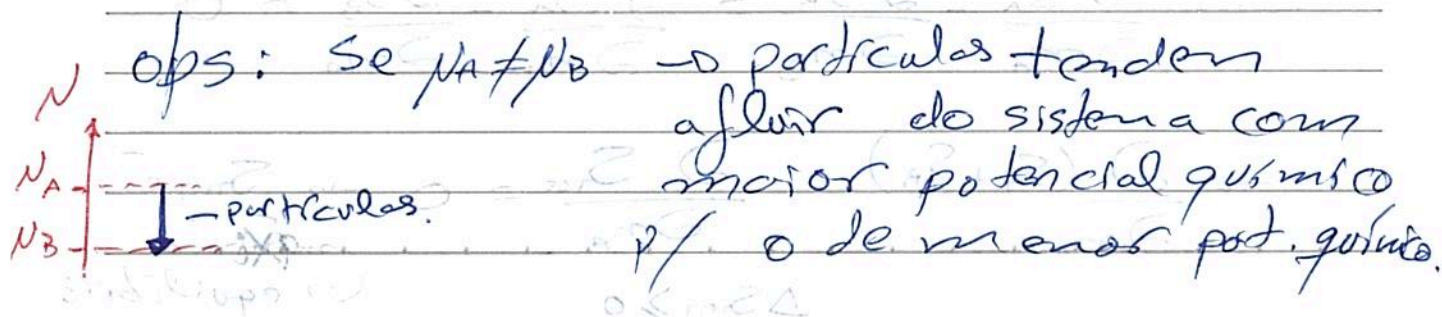 obs: Se μA ≠ μB → partículas tendem
a fluir do sistema com
maior potencial químico
p/ o de menor pot. químico.
μ
μA
- partículas.
μB